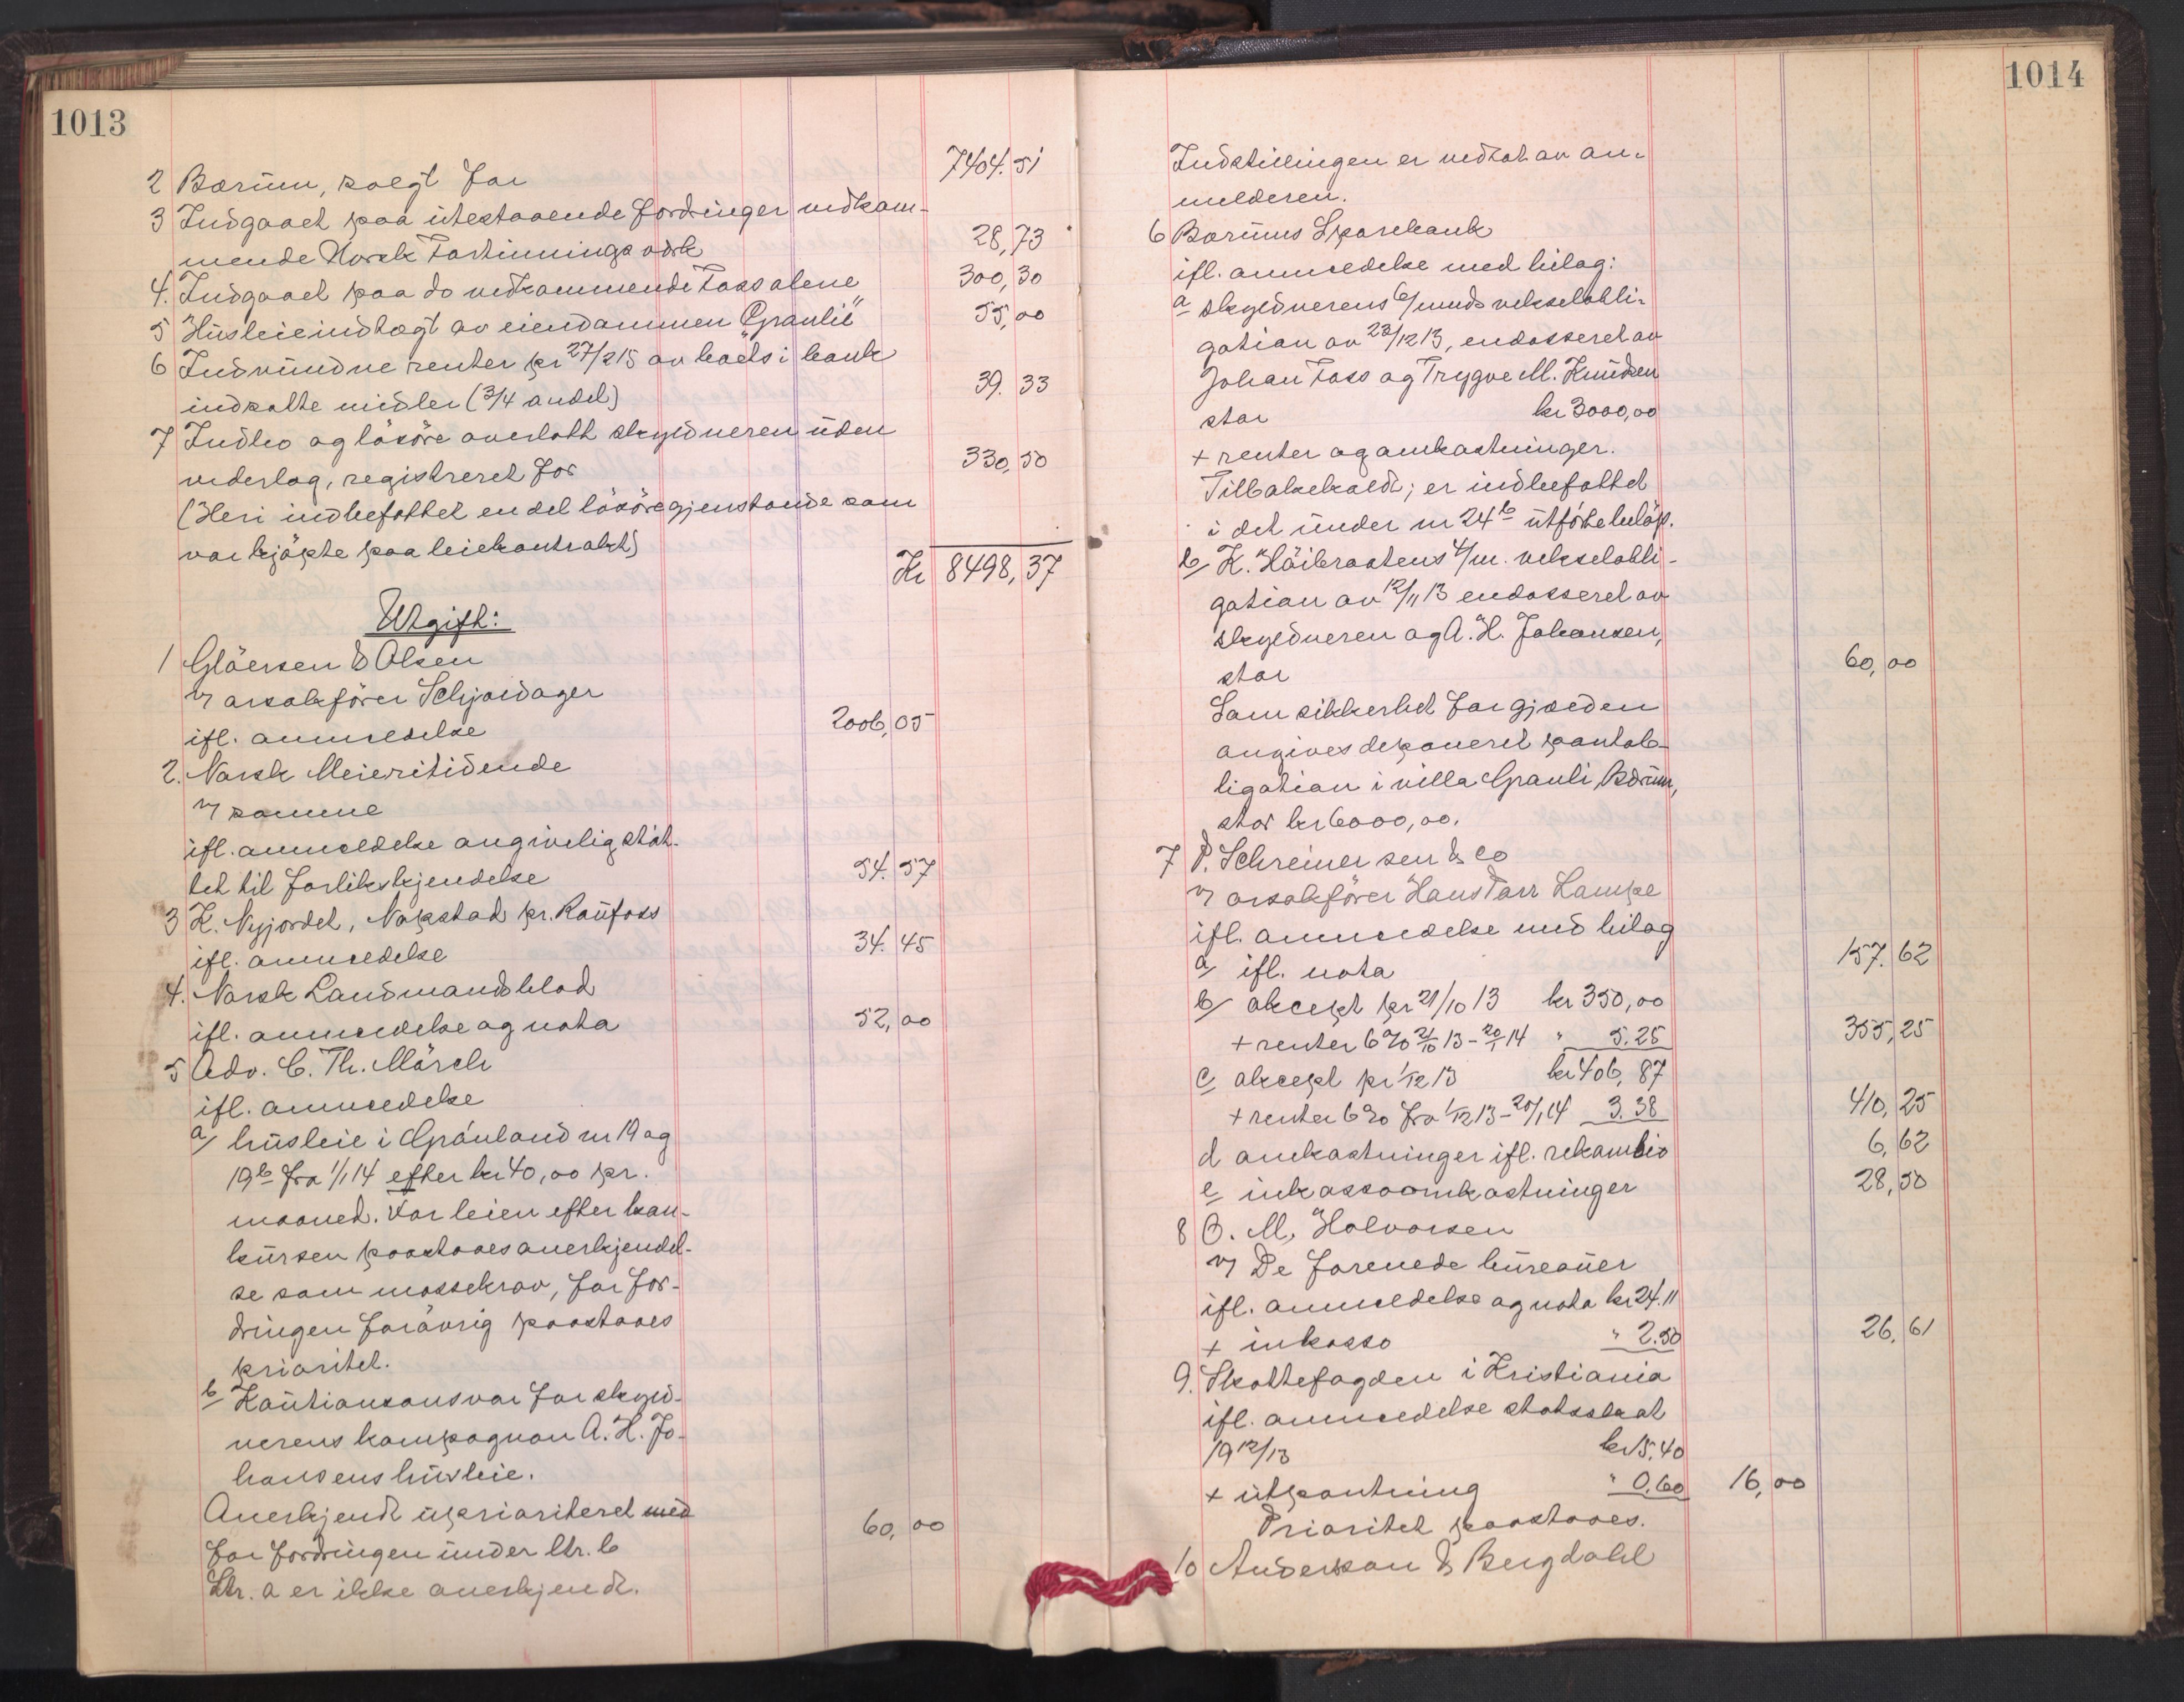 1013
7404.51
2 Bærum, solgt for
3 Indgaaet paa utestaaende fordringer vedkom-
mende Norsk Fortinningsverk 28,73
4. Indgaaet paa do vedkommende Foss alene 300,30
5 Husleieindtægt av eiendommen "Granli" 55,00
6 Indvundne renter pr 27/2 15 av boets i bank
indsatte midler (3/4 andel) 39.33
7 Indbo og løsöre overlatt skyldneren uden
vederlag, registreret for 330,50
(Heri indbefattet en del løsöregjenstande som
var kjøpte paa leiekontrakt)
Kr 8498,37
Utgift:
1 Gløersen & Olsen
v/ orsakfører Schjoldager
ifl. anmeldelse 2006,05
2. Norsk Meieritidende
v/ samme
ifl. anmeldelse angivelig støt-
tet til forlikskjendelse 54.57
3 K. Nyjordet, Nopstad pr. Raufoss
ifl. anmeldelse 34.45
4. Norsk Landmandsblad
ifl. anmeldelse og nota 52,00
5 Adv. C. Th. Mörch
ifl. anmeldelse
a/ husleie i Grönland nr 19 og
19b fra 1/1 14 efter kr 40,00 pr.
maaned. For leien efter kon-
kursen paastaaes anerkjendel-
se som massekrav, for for-
dringen forøvrig paastaaes
prioritet.
b Kautionsansvar for skyld-
nerens kompagnon A. H. Jo-
hansens husleie.
Anerkjendt uprioriteret med 60,00
for fordringen under ltr. b
Ltr. a er ikke anerkjendt.
1014
Indstillingen er vedtat av an-
melderen.
6 Bærums Sparebank
ifl. anmeldelse med bilag:
a skyldnerens 6/mnds vekselobli-
gation av 23/12 13, endosseret av
Johan Foss og Trygve M. Knudsen
stor kr 3000,00
+ renter og omkostninger.
Tilbakekaldt; er indbefattet
i det under nr 24b utførte beløp.
b/ K. Høibraatens 4/m. vekselobli-
gation av 12/11 13 endosseret av
skyldneren og A. H. Johansen,
stor 60,00
Som sikkerhet for gjælden
angives deponeret pantob-
ligation i villa Granli, Bærum,
stor kr 6000,00.
7 P. Schreiner sen & co
v/ orsakfører Hans Tarr Lampe
ifl. anmeldelse med bilag
a/ ifl. nota 157.62
b/ aksept pr 21/10 13 kr 350,00
+ renter 6% 21/10 13 - 20/1 14 " 5.25 355,25
c/ aksept pr 1/12 13 kr 406,87
+ renter 6% fra 1/12 13 - 20/1 14 3.38 410,25
d omkostninger ifl. rekambio 6,62
e inkassoomkostninger 28,50
8 O. M. Halvorsen
v/ De forenede bureauer
ifl. anmeldelse og nota kr 24.11
+ inkasso " 2.50 26,61
9. Skattefogden i Kristiania
ifl. anmeldelse statsskat
1912/13 kr 15.40
+ utpantning " 0,60 16,00
Prioritet paastaaes.
10 Anderson & Bergdahl